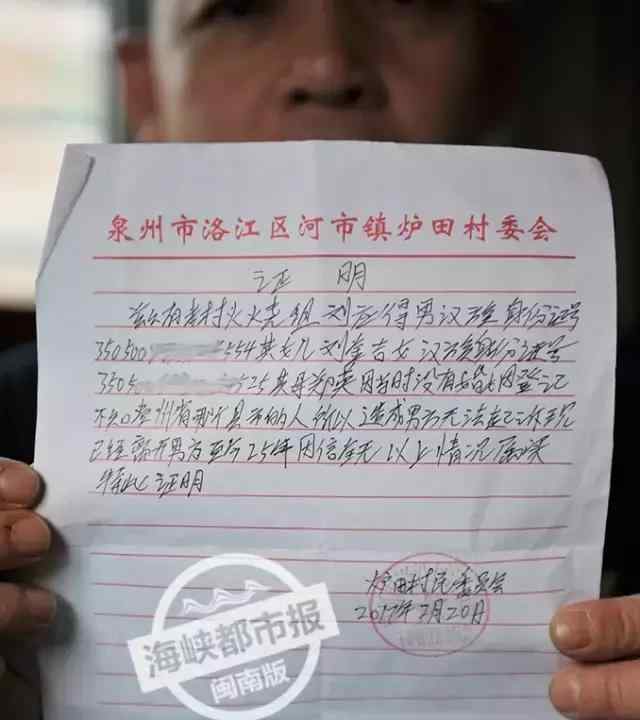 泉州市洛江区河市镇炉田村委会
证 明
兹有者村火火烧组 刘应得男汉族身份证号
350500 554其女儿刘金吉女汉族身份证号
3505 525其母郑英因当时没有婚因登记
不知贵州省那个县市的人所以造成男方无法
已经离开男方至今25年因信全无 以上情况属实
特此证明
炉田村民委员会
2017年2月20日
海峡都市报
闽南版